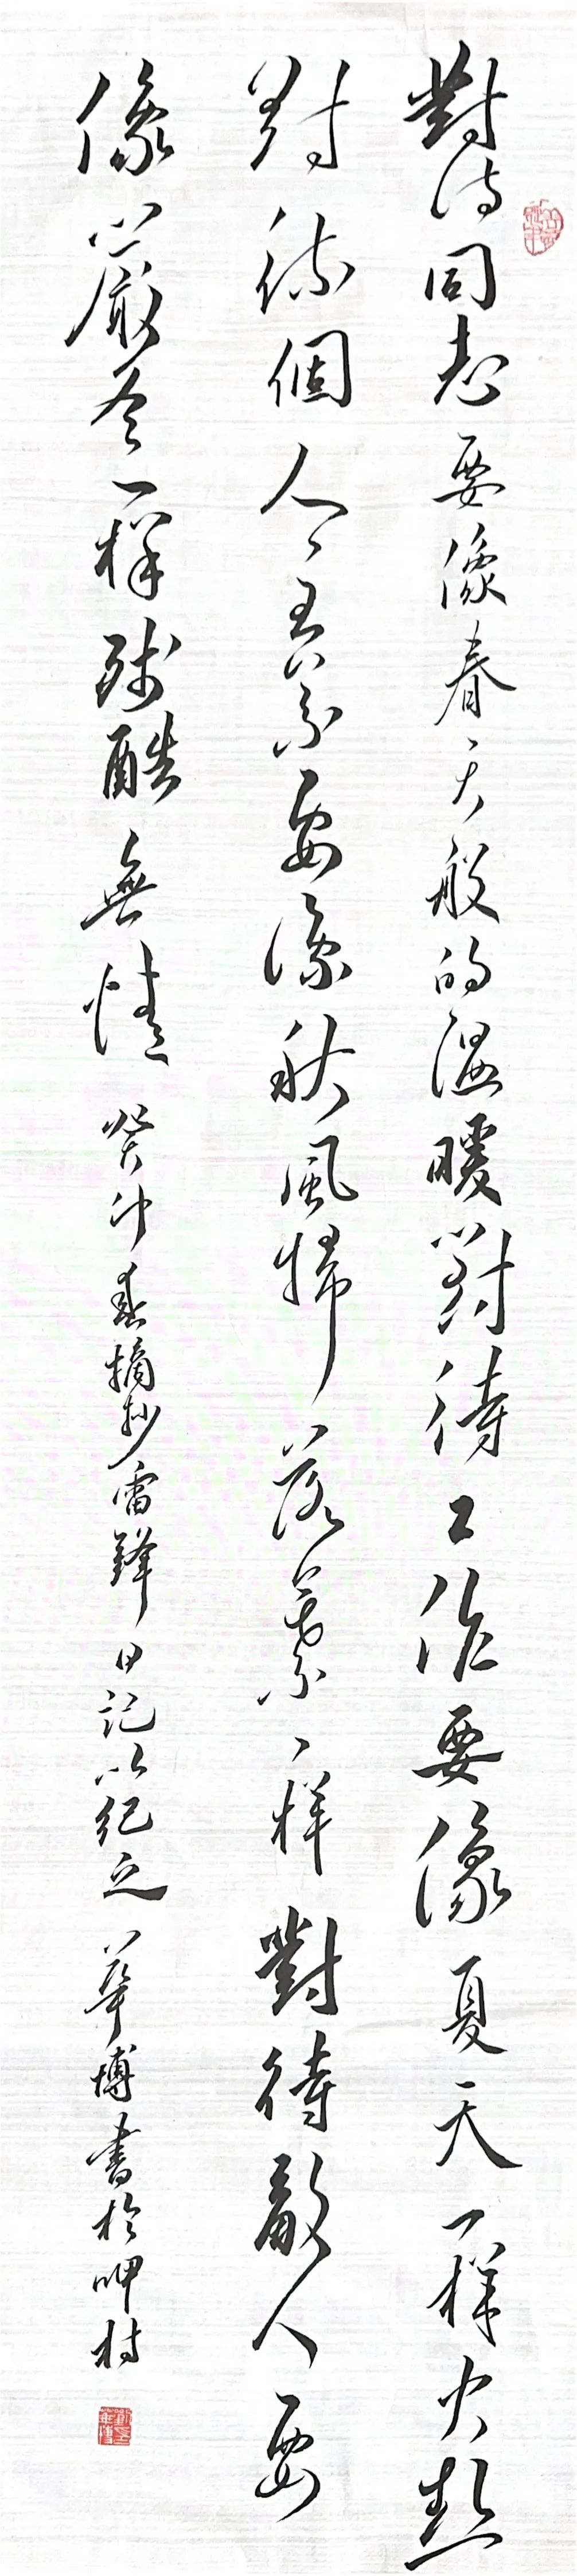 對待同志要像春天般的溫暖對待工作要像夏天一樣火熱
對待個人主義要像秋風掃落葉一樣對待敵人要
像嚴冬一樣殘酷無情
癸卯春摘抄雷鋒日記以紀之 華博書於呷村